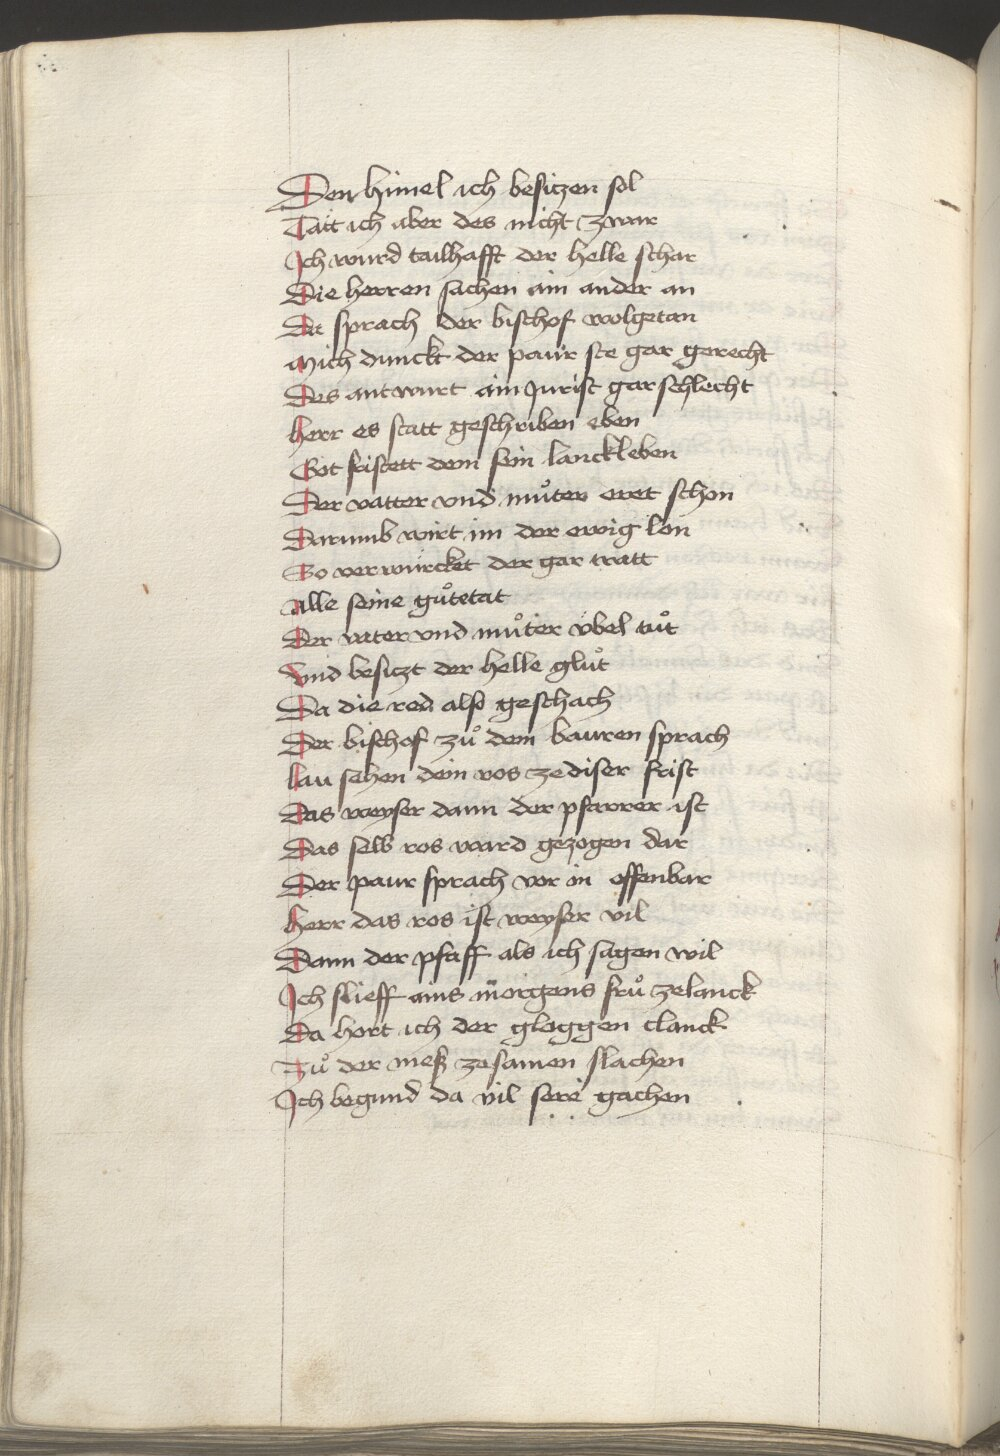 Den himel ich besitzen sol
Tätt ich aber des nicht zwar
Ich wurd tailhafft der helle schar
Die herren sachen ain ander an
Da sprach der bischof wolgetan
Mich dunckt der paur ste gar gerecht
Des antwurt ain Jurist gar schlecht
herr es statt geschriben eben
Got fristett dem sein lanckleben
Der vatter vnd muͦter eret schon
Darumb wirt im der ewig lon
So verwürcket der gar tratt
Alle seine guͦtetat
Der vater vnd muͦter vͤbel tuͦt
Vnd besitzt der helle gluͦt
Da die red also geschach
Der bischof zuͦ dem bauren sprach
lau sehen dein ros ze diser frist
Das weyser dann der pfarrer ist
Das selb ros ward gezogen dar
Der paur sprach vor in offenbar
herr das ros ist weyser vil
Dann der pfaff als ich sagen wil
Ich slieff ains morgens fruͦ ze lanck
Da hort ich der gloggen clanck
Zuͦ der meß zesamen slachen
Ich begund da vil sere gachen